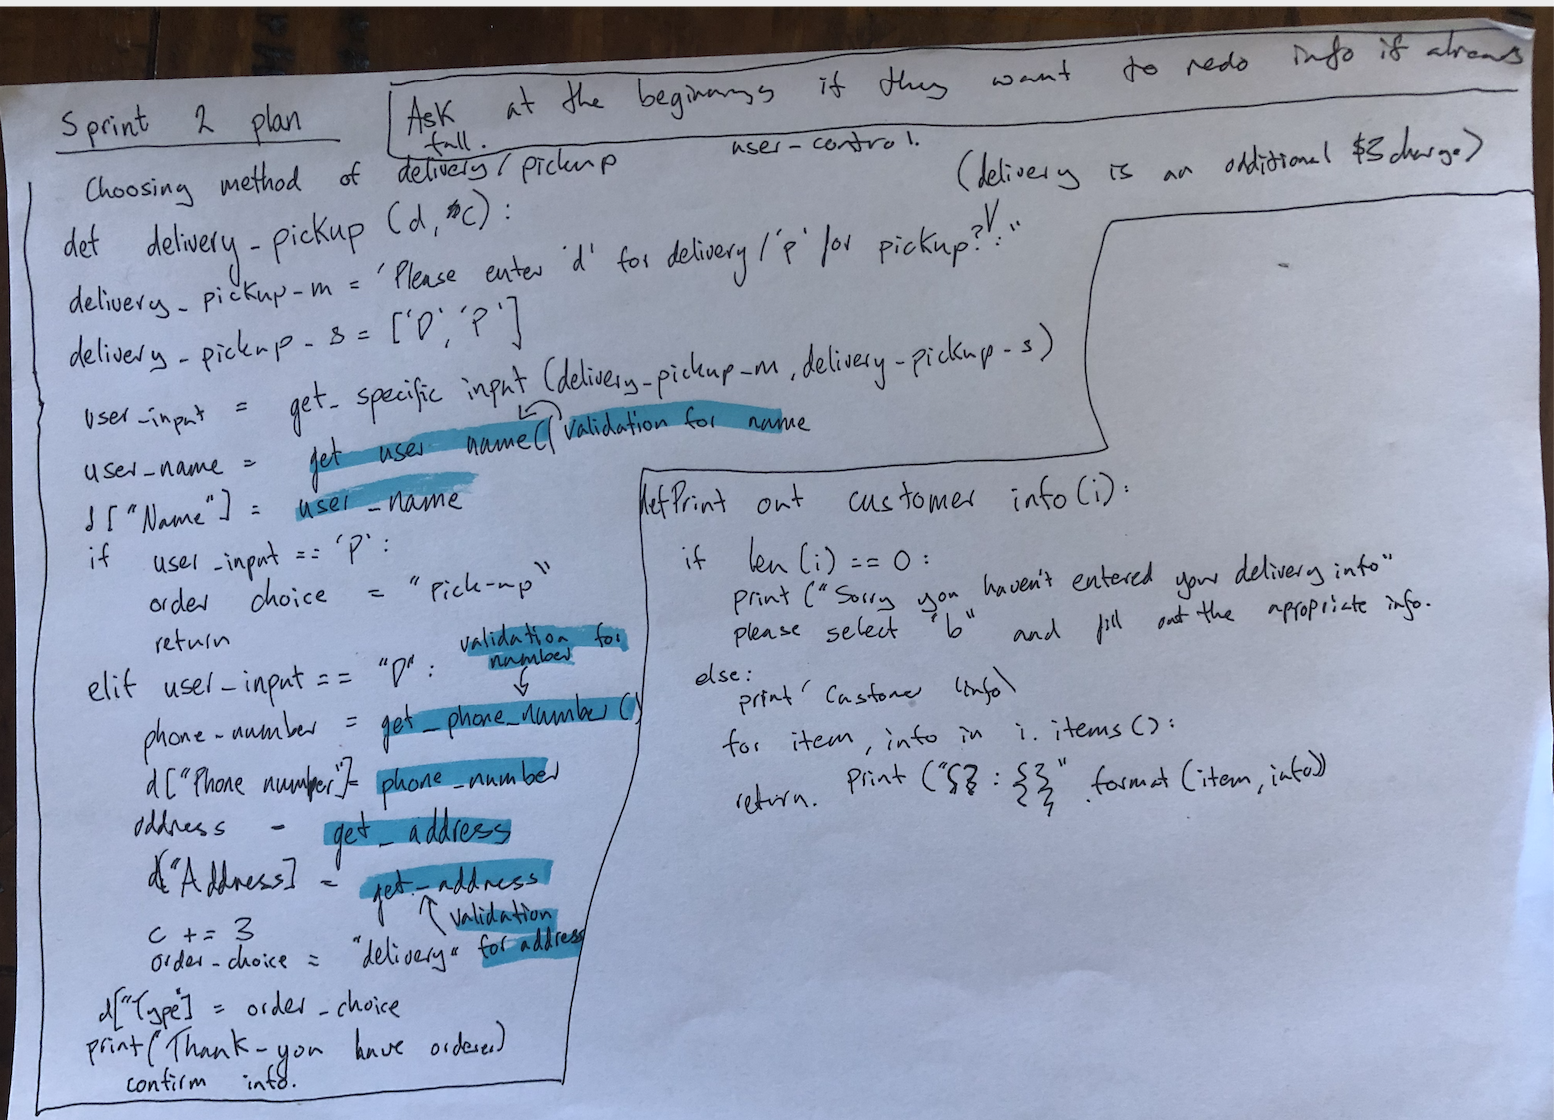 Sprint 2 plan
Ask at the beginning if they want to redo info if already
full.
user-control.
Choosing method of delivery / pickup
(delivery is an additional $3 charge)
def delivery_pickup (d, c):
delivery_pickup_m = 'Please enter 'd' for delivery / 'p' for pickup?:"
delivery_pickup_s = ['D', 'P']
user_input = get_specific input (delivery_pickup_m, delivery_pickup_s)
user_name = get user name() validation for name
d["Name"] = user_name
if user_input == 'P':
order choice = "Pick-up"
return
elif user_input == "D":
validation for
number
phone_number = get_phone_number()
d["Phone number"]= phone_number
address - get_address
d["Address] = get_address
validation
for address
c += 3
order_choice = "delivery"
d["Type"] = order_choice
print(Thank-you have ordered)
confirm info.
def Print out customer info(i):
if len(i) == 0:
print ("Sorry you haven't entered your delivery info"
please select "b" and fill out the apropriate info.
else:
print' Customer info\
for item, info in i.items():
print ("{} : {}" .format (item, info))
return.